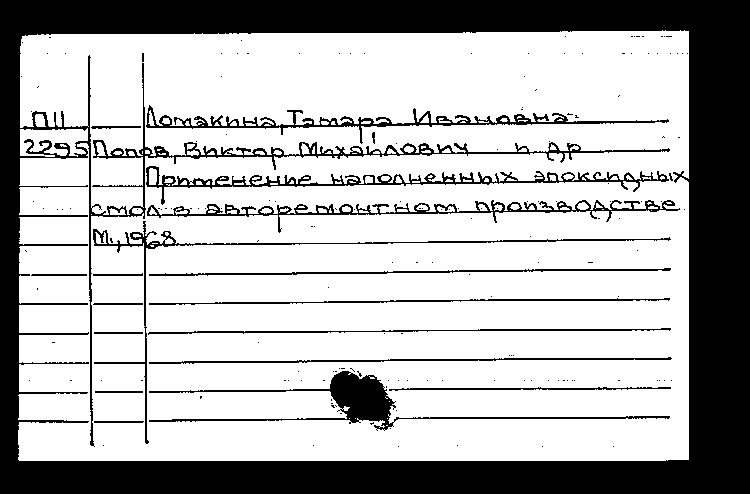 П11 Ломакина, Тамара Ивановна
2295 Попов, Виктор Михайлович и др
Применение наполненных эпоксидных
смол в авторемонтном производстве
М., 1968